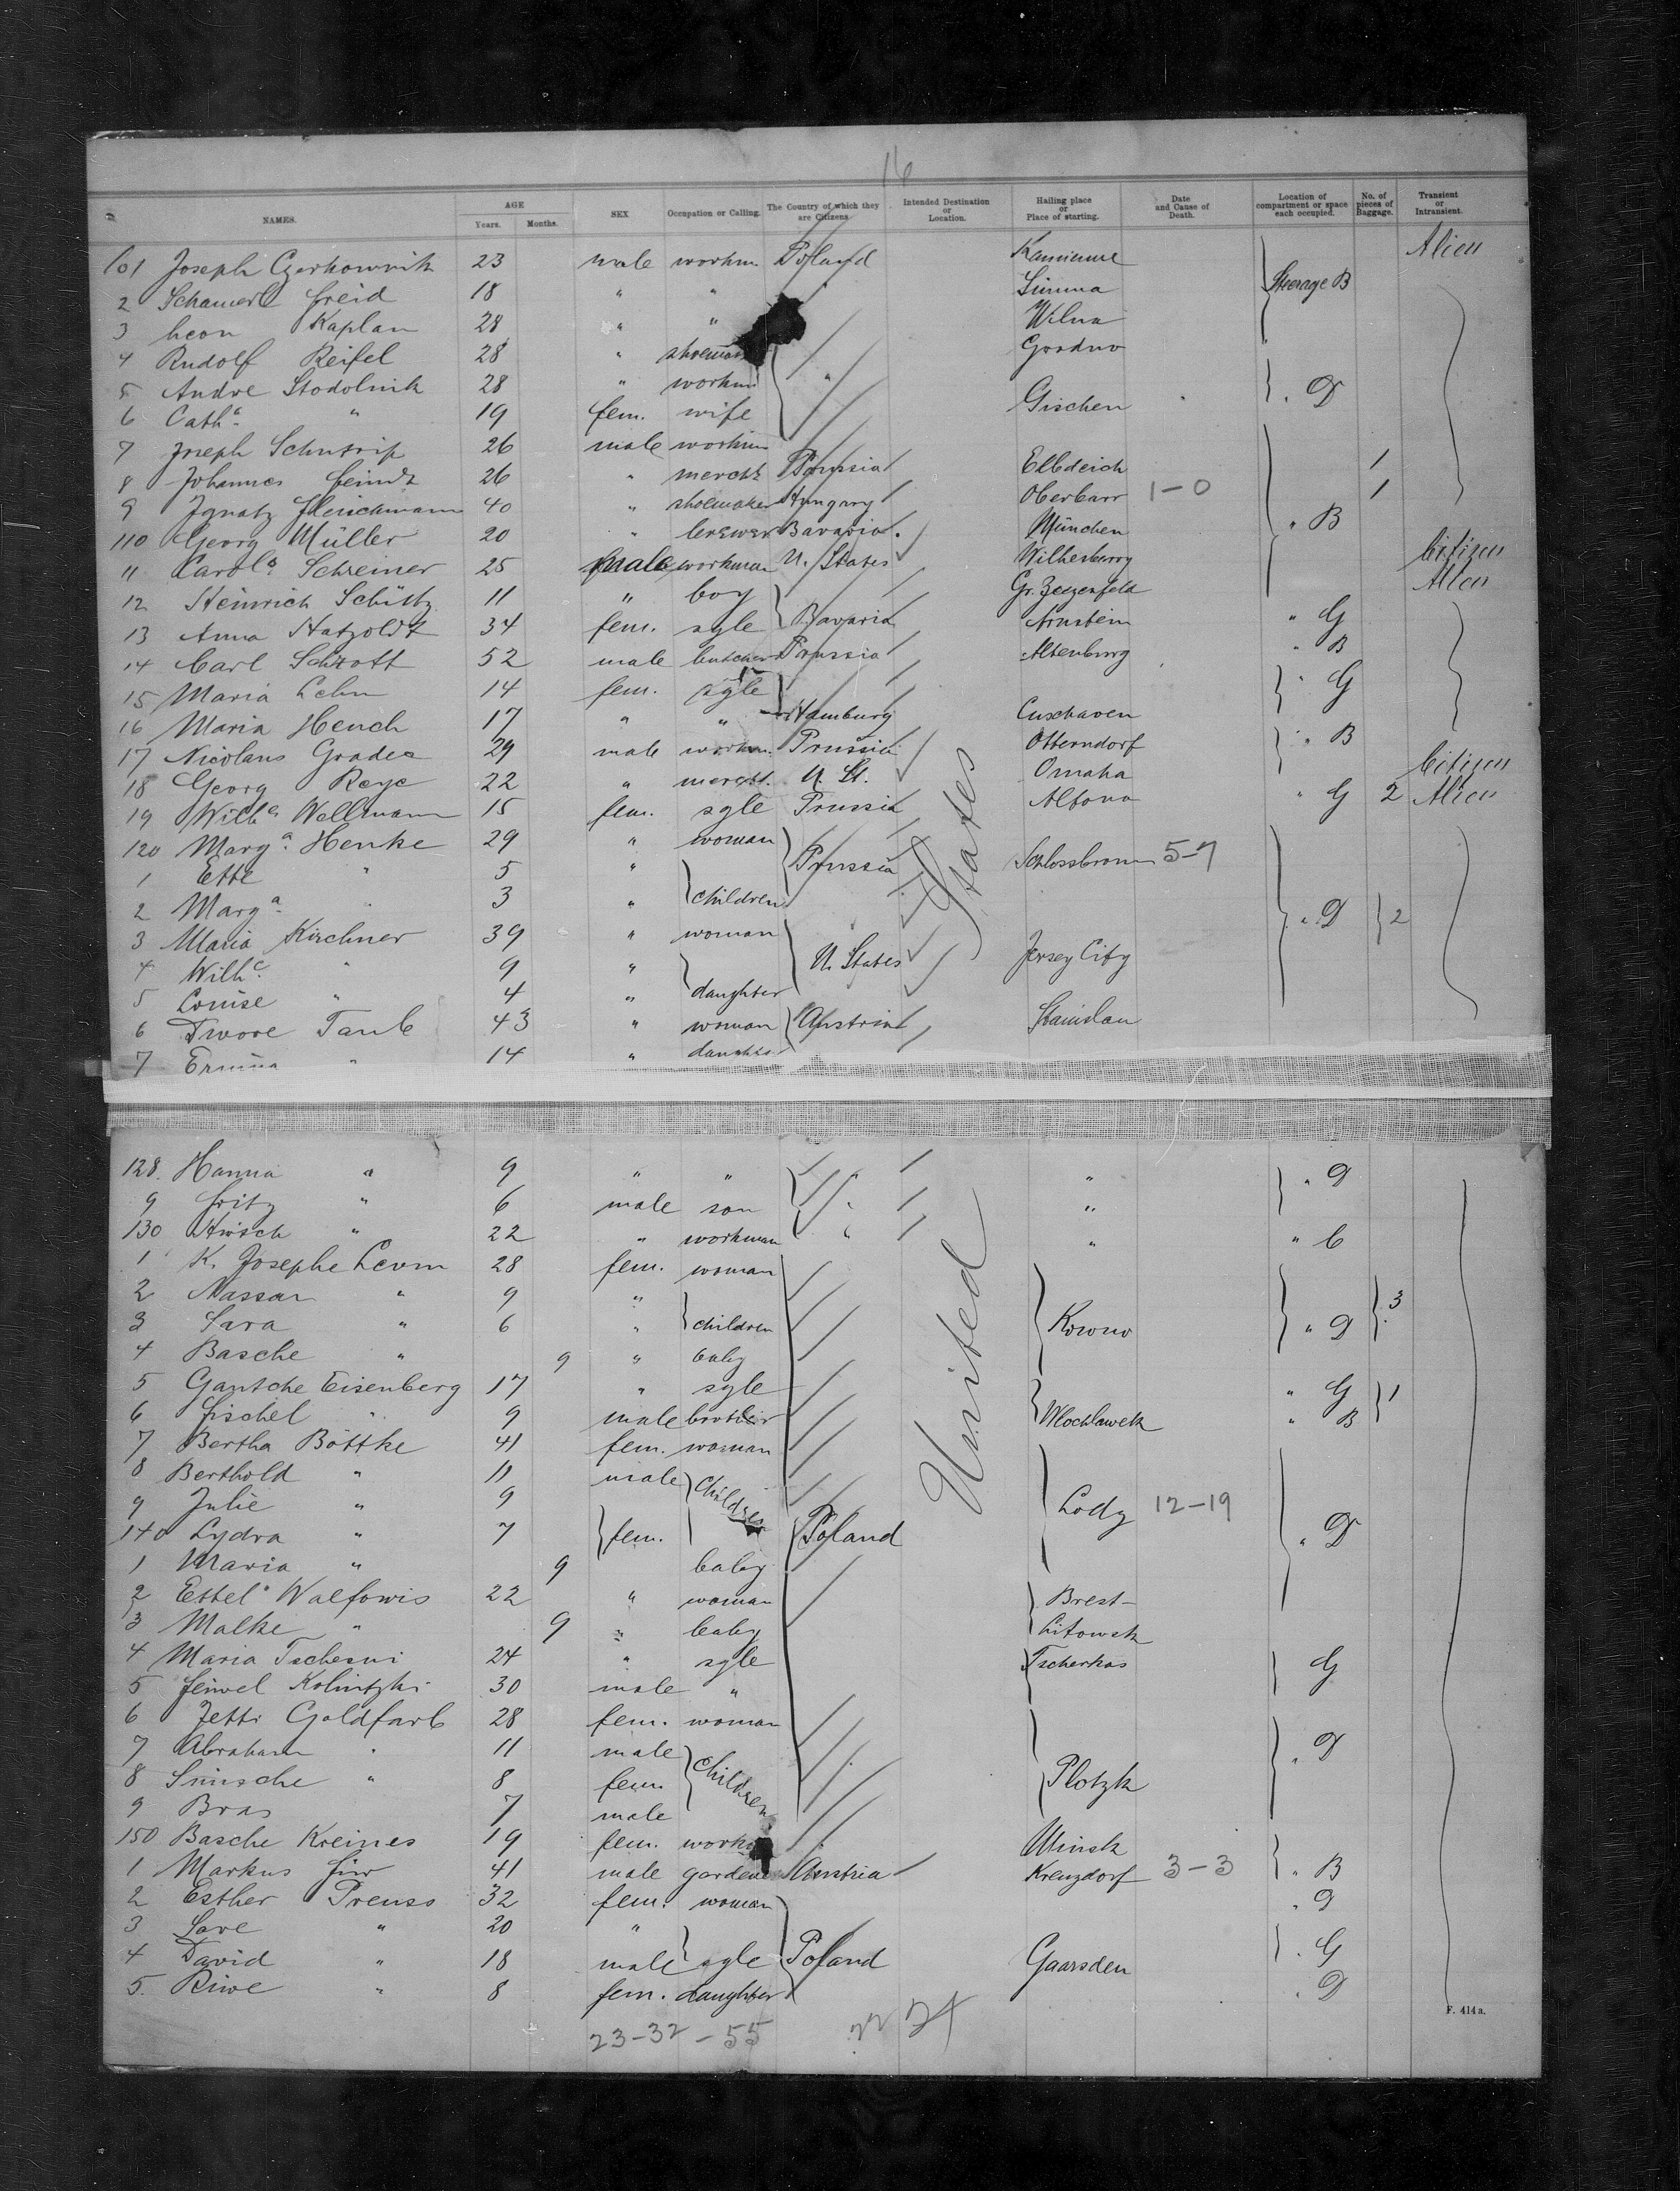 16
NAMES. AGE Years. Months. SEX Occupation or Calling. The Country of which they are Citizens Intended Destination or Location. Hailing place or Place of starting. Date and Cause of Death. Location of compartment or space each occupied. No. of pieces of Baggage. Transient or Intransient.
101 Joseph Czerkownik 23 male workm Poland Steerage B Alien
2 Schmerl Freid 18 " "
3 Leon Kaplan 28 " " Wilna
4 Rudolf Reifel 28 " Grodno
5 Andre Stodolnik 28 " workm " " D
6 Cath.a " 19 fem. wife Gischen
7 Joseph Schutrip 26 male workm
8 Johannes 26 " mercht Prussia Elbdeich 1
9 Ignatz Fleischmann 40 " shoemaker Hungary Oberbarr 1-0 1
110 Georg Müller 20 " brewer Bavaria München " B
11 Carol.a Schreiner 25 male workman U. States Citizen
12 Heinrich Schültz 11 " boy Alien
13 Anna Hatzoldt 34 fem. sgle Bavaria Arnstein " G
14 Carl Schrott 52 male butcher Prussia Altenburg " B
15 Maria Lehn 14 fem. sgle " G
16 Maria Hench 17 " " Hamburg Cuxhaven
17 Nicolaus Grader 29 male workm. Prussia Otterndorf " B
18 Georg Reye 22 " mercht. U. St. Omaha Citizen
19 Wilh.a Wellmann 15 fem. sgle Prussia Altona " G 2 Alien
120 Marg.a Henke 29 " woman Prussia Schlossbronn 5-7
1 Ette " 5 "
2 Marg.a " 3 " children
3 Maria Kirchner 39 " woman U. States Jersey City " D 2
4 Wilh.e " 9 "
5 Louise " 4 " daughter
6 Dwore Taub 43 " woman Austria Stanislau
7 Ernina " 14 " daughter
128. Hanna " 9 " " " " " D
9 Fritz " 6 male son "
130 Hirsch " 22 " workman " " " C
1 K. Josephe Levin 28 fem. woman
2 Nassan " 9 "
3 Sara " 6 " children Kowno " D 3
4 Basche " 9 " baby
5 Gantche Eisenberg 17 " sgle " G 1
6 Fischel " 9 male brother Wloclawek " B
7 Bertha Böttke 41 fem. woman
8 Berthold " 11 male Children
9 Julie " 9 Lody 12-19
140 Lydra " 7 fem. Poland " D
1 Maria " 9 baby
2 Ettel Walfowis 22 " woman Brest-
3 Malke " 9 " baby Litowsk
4 Maria Tschesni 24 " sgle Tscherkas G
5 Feiwel Kolnitzki 30 male "
6 Jetti Goldfarb 28 fem. woman
7 Abraham " 11 male Children " D
8 Simsche " 8 fem Plotzk
9 Bras 7 male
150 Basche Kreines 19 fem. Minsk
1 Markus 41 male gardener Austria Krenzdorf 3-3 " B
2 Esther Preuss 32 fem. woman " D
3 Save " 20 "
4 David " 18 male sgle Poland Gaarsden " G
5. Riwe " 8 fem. daughter " D
United States
F. 414a.
23-32-55